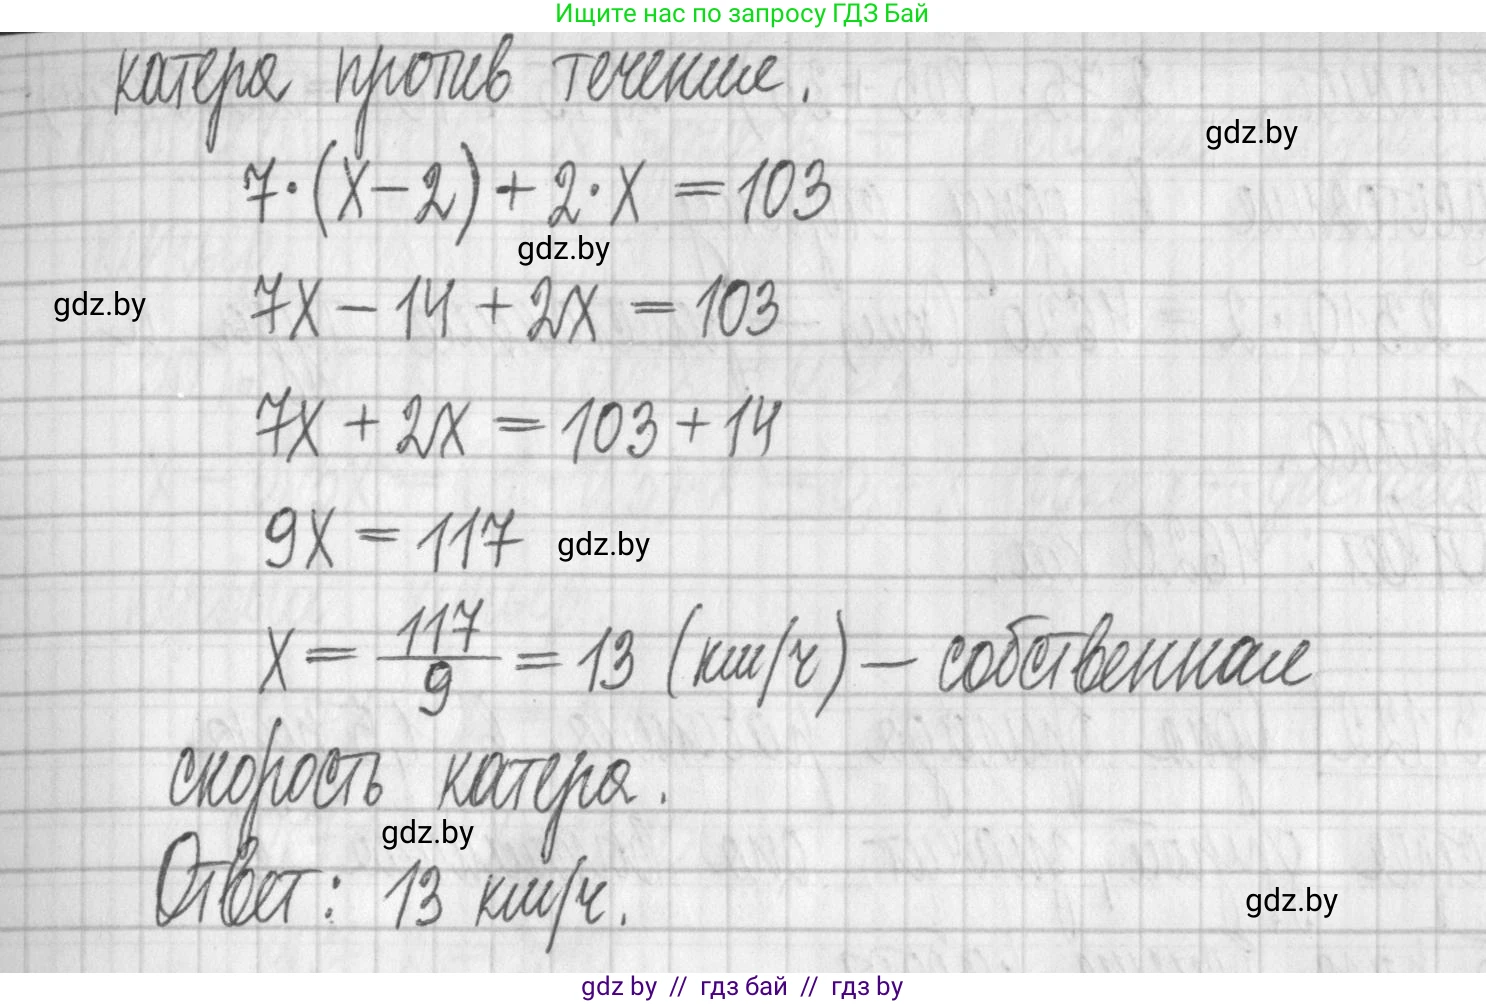 Ищите нас по запросу ГДЗ Бай
катера против течение.
gdz.by
7·(x-2)+2·x=103
gdz.by
gdz.by
7x-14+2x=103
7x+2x=103+14
9x=117
gdz.by
x=117/9=13 (км/ч) — собственная
скорость катера.
gdz.by
Ответ: 13 км/ч.
gdz.by
gdz by // гдз бай // гдз by